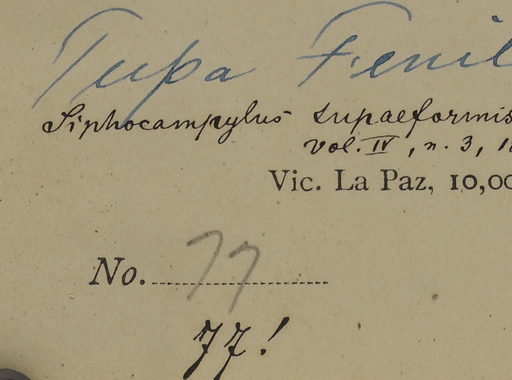 Tupa Fenil
Siphocampylus tupaeformis
vol. IV, n. 3, 18
Vic. La Paz, 10,00
No. 77
77!